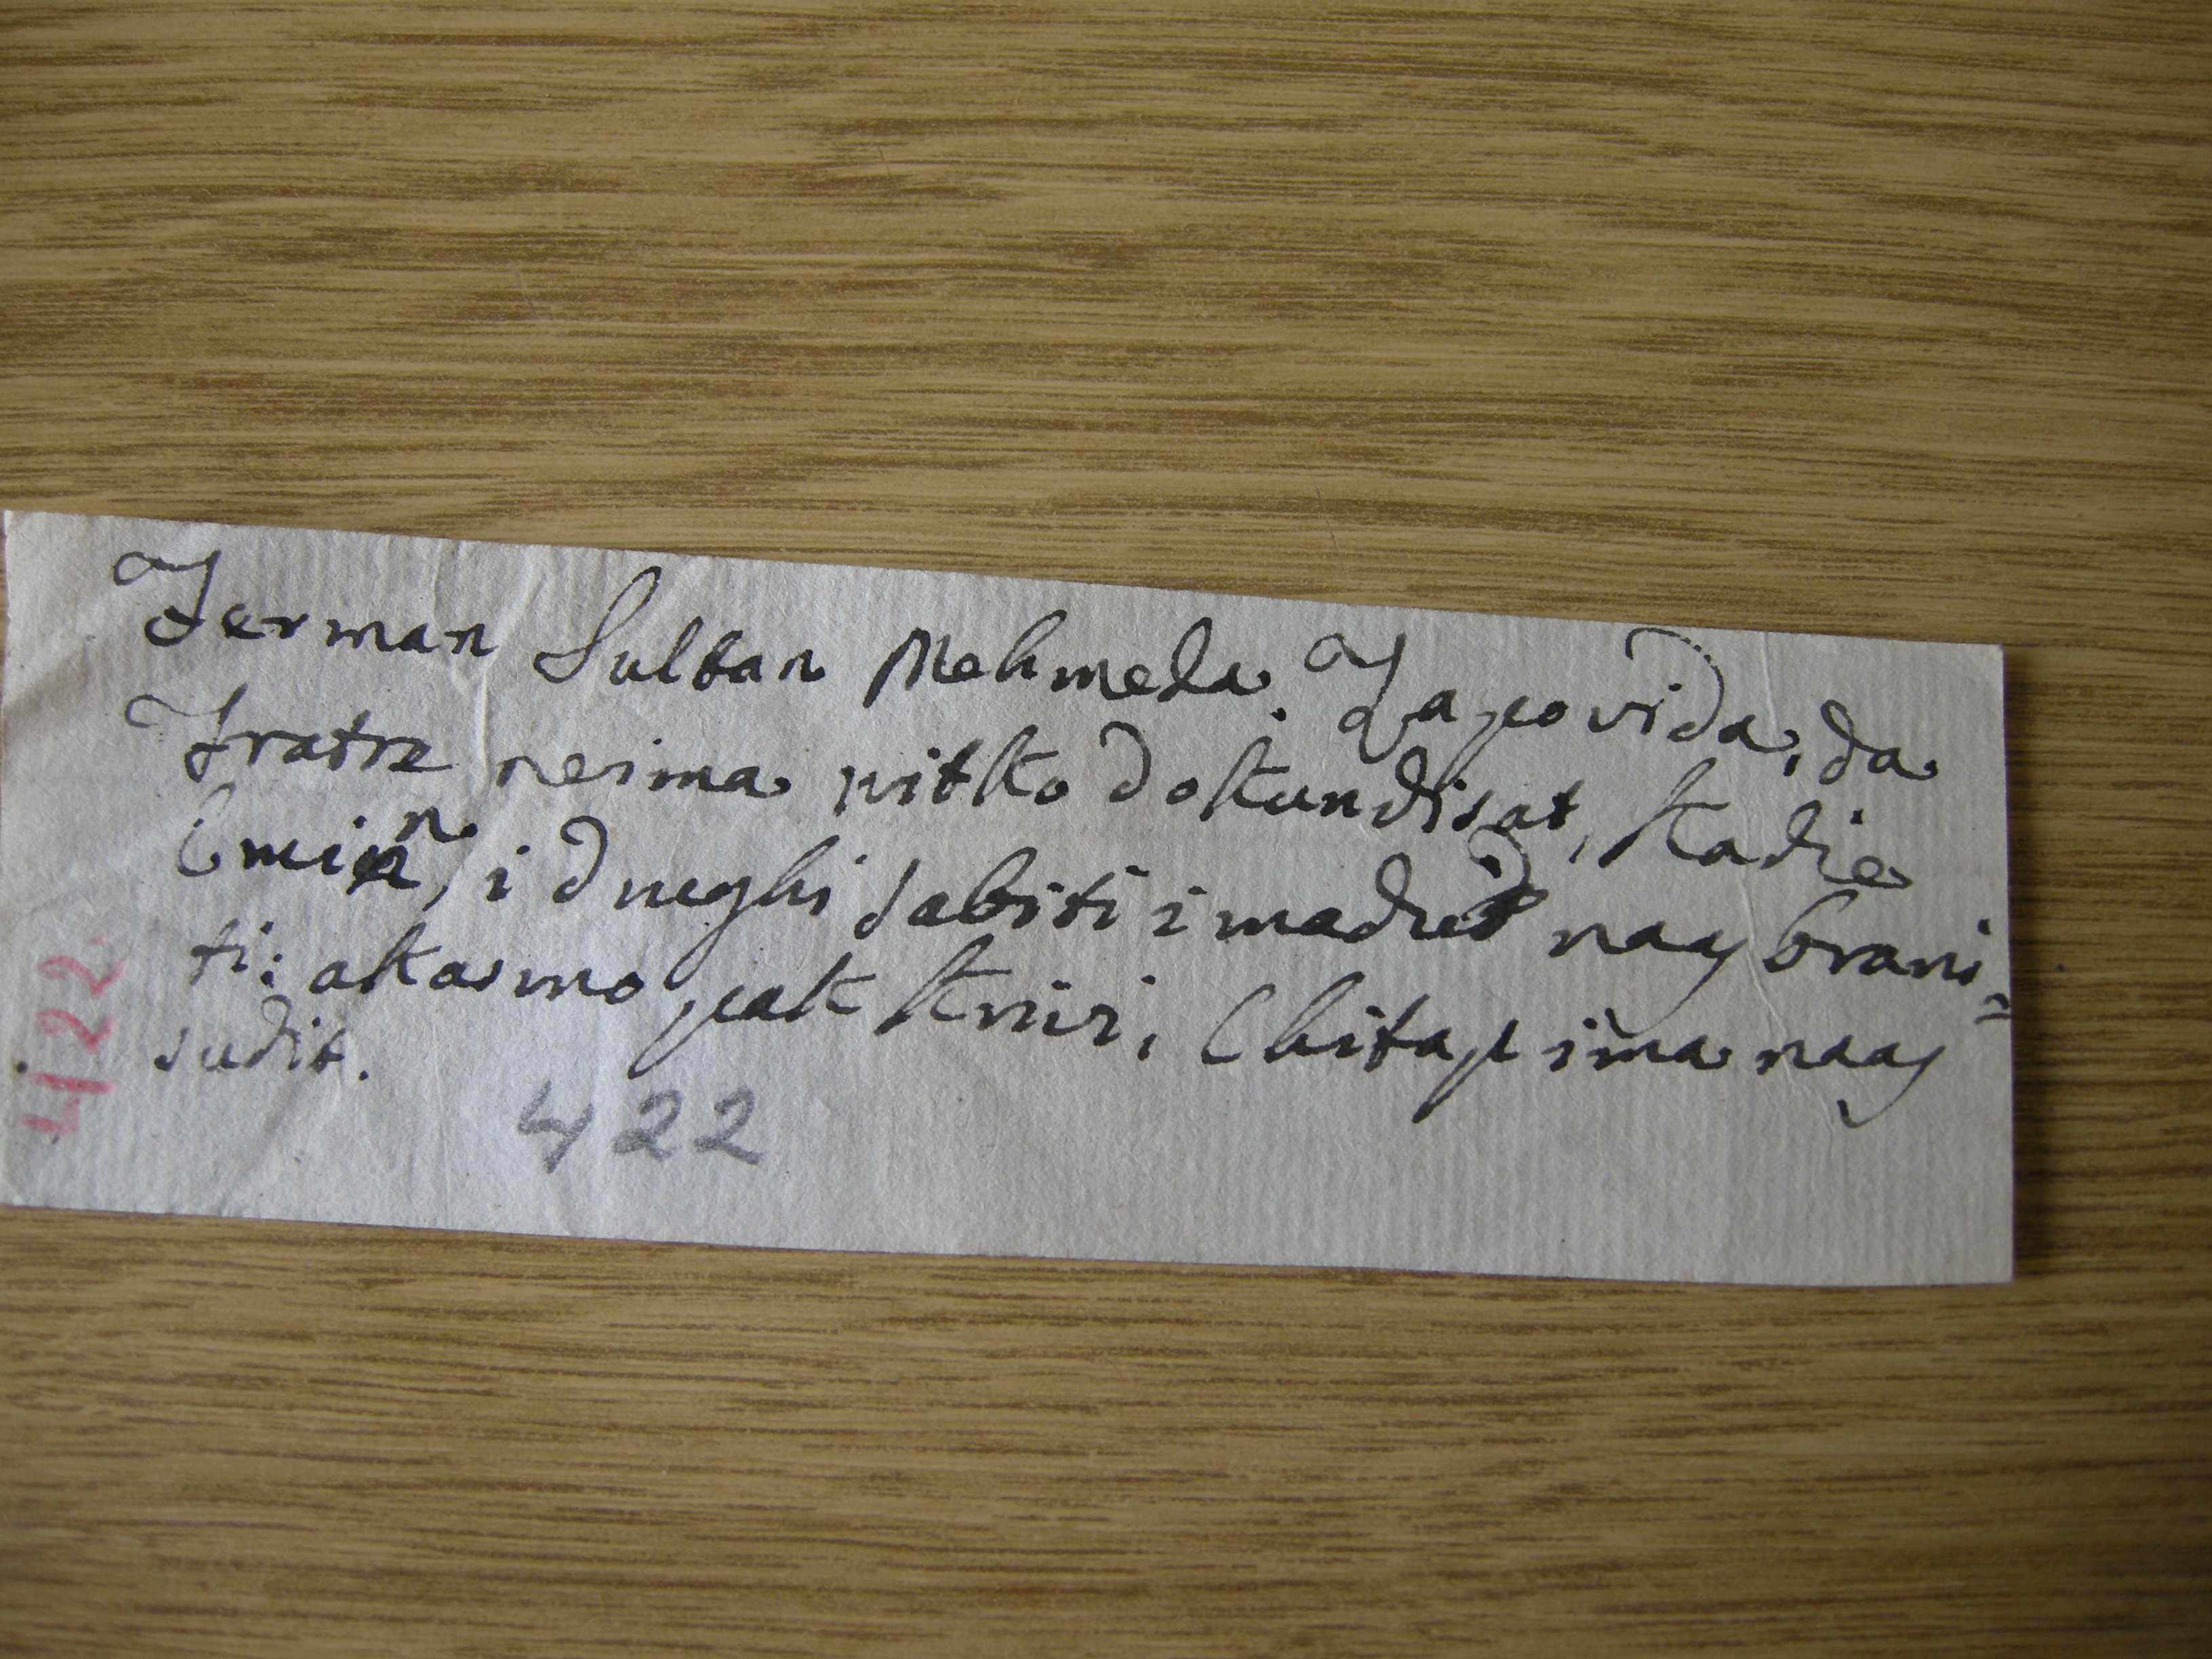 Ferman Sultan Mehmeda. Zapovida, da
Fratre neima nitko dokundisat, kadie
Emin, i drughi sabiti imadu nay brani=
ti: akasmo pak krivi, Chitap ima naas
sudit.
422
422